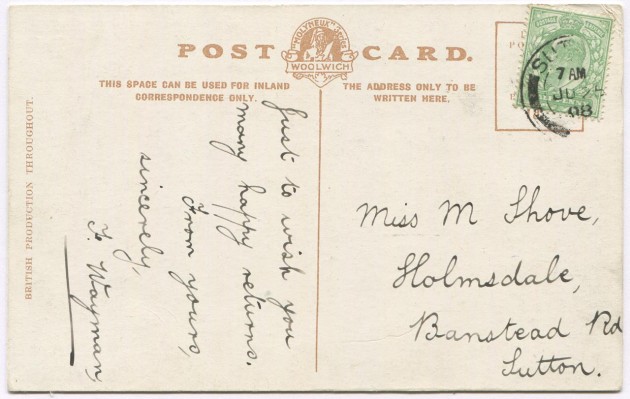 POST CARD.
"MOLYNEUX" Series
WOOLWICH
THIS SPACE CAN BE USED FOR INLAND
CORRESPONDENCE ONLY.
THE ADDRESS ONLY TO BE
WRITTEN HERE.
BRITISH PRODUCTION THROUGHOUT.
Just to wish you
many happy returns.
From yours,
sincerely,
F. Wayman,
SUT
7 AM
JU
08
Miss M Shove,
Holmsdale,
Banstead Rd
Sutton.